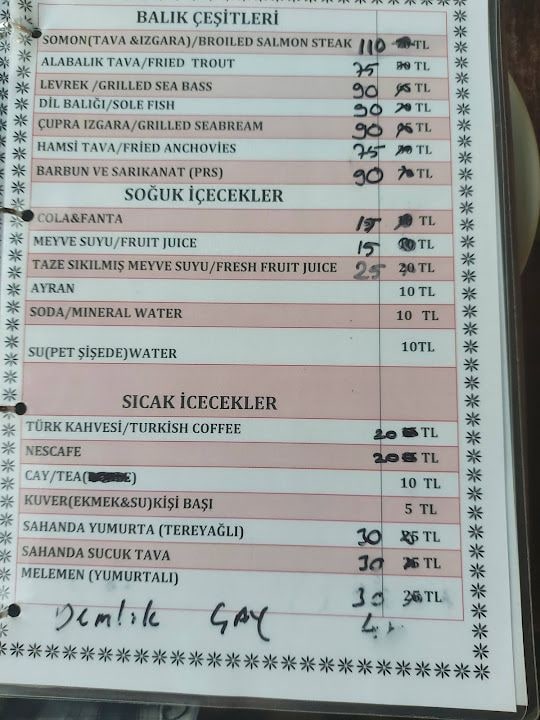 BALIK ÇEŞİTLERİ
SOMON(TAVA &IZGARA)/BROILED SALMON STEAK 110 TL
ALABALIK TAVA/FRIED TROUT 75 TL
LEVREK /GRILLED SEA BASS 90 TL
DİL BALIĞI/SOLE FISH 90 TL
ÇUPRA IZGARA/GRILLED SEABREAM 90 TL
HAMSİ TAVA/FRIED ANCHOVIES 75 TL
BARBUN VE SARIKANAT (PRS) 90 TL
SOĞUK İÇECEKLER
COLA&FANTA 15 TL
MEYVE SUYU/FRUIT JUICE 15 TL
TAZE SIKILMIŞ MEYVE SUYU/FRESH FRUIT JUICE 25 20 TL
AYRAN 10 TL
SODA/MINERAL WATER 10 TL
SU(PET ŞİŞEDE)WATER 10TL
SICAK İCECEKLER
TÜRK KAHVESİ/TURKISH COFFEE 20 TL
NESCAFE 20 TL
CAY/TEA( ) 10 TL
KUVER(EKMEK&SU)KİŞİ BAŞI 5 TL
SAHANDA YUMURTA (TEREYAĞLI) 30 TL
SAHANDA SUCUK TAVA 30 TL
MELEMEN (YUMURTALI) 30 TL
Demlik ÇAY